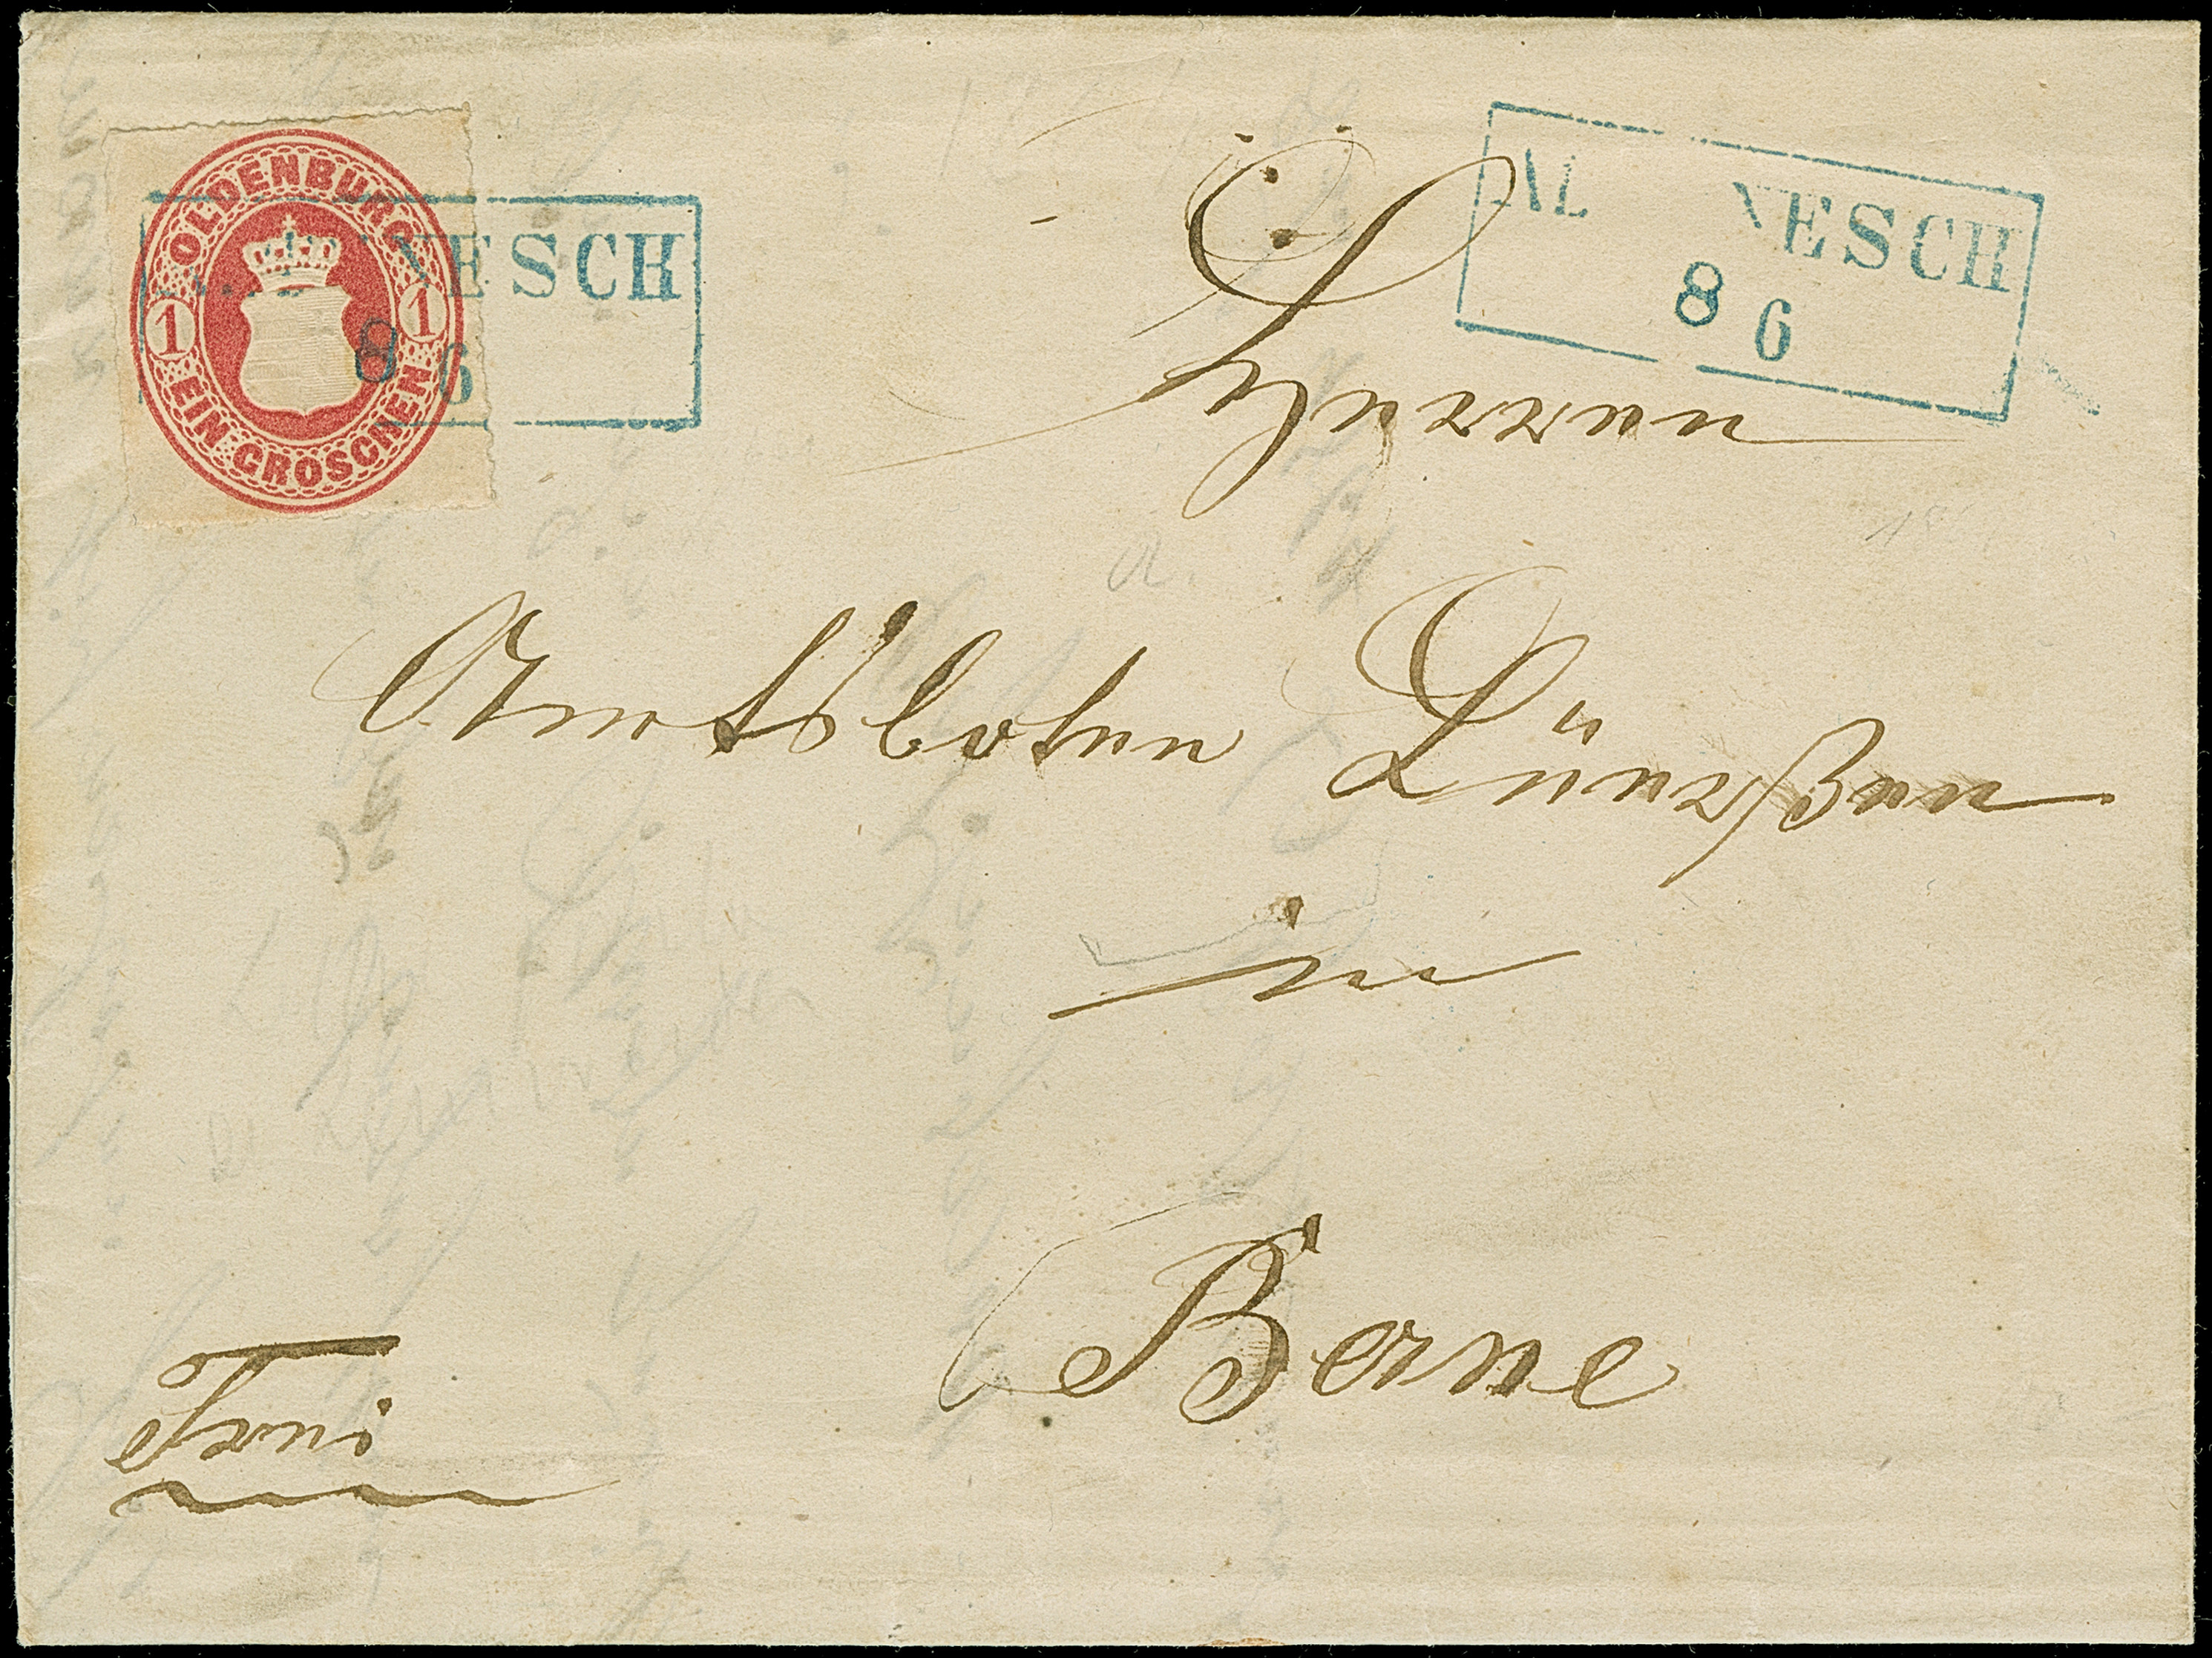 OLDENBURG
1 1
EIN GROSCHEN
NESCH
8 6
AL NESCH
8 6
Herrn
Amtsboten Lüerßen
in
Berne
Frei